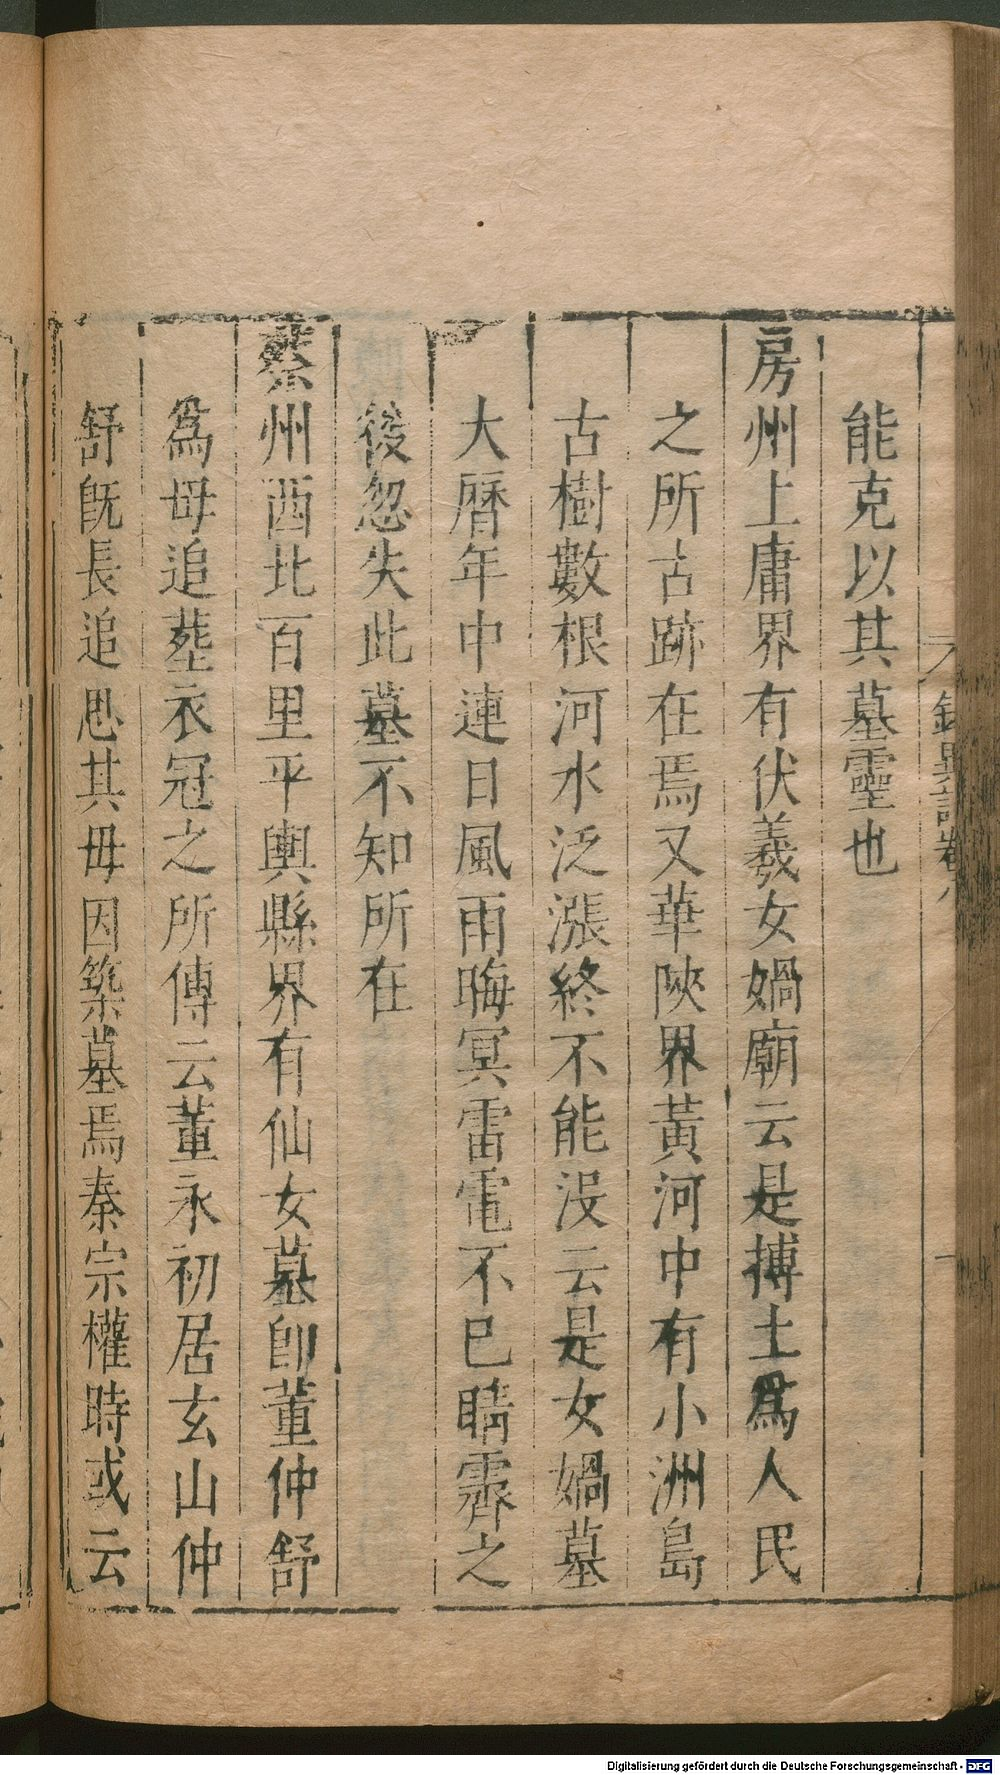 錄異記卷八
能克以其墓靈也
房州上庸界有伏羲女媧廟云是摶土爲人民
之所古跡在焉又華陝界黃河中有小洲島
古樹數根河水泛漲終不能没云是女媧墓
大曆年中連日風雨晦冥雷電不已晴霽之
後忽失此墓不知所在
蔡州西北百里平輿縣界有仙女墓即董仲舒
爲母追葬衣冠之所傳云董永初居玄山仲
舒旣長追思其母因築墓焉秦宗權時或云
Digitalisierung gefördert durch die Deutsche Forschungsgemeinschaft - DFG